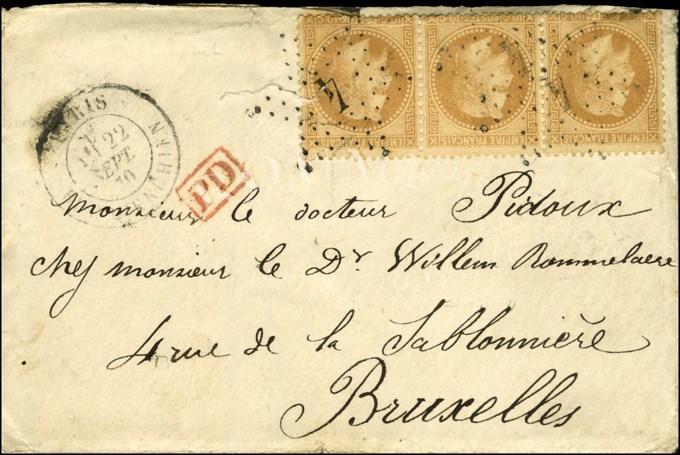 EMPIRE FRANÇAIS EMPIRE FRANÇAIS EMPIRE FRANÇAIS
PARIS
22
SEPT
PD
Monsieur le docteur Pidoux
chez monsieur le Dr Willem Rommelaere
4 rue de la Sablonnière
Bruxelles